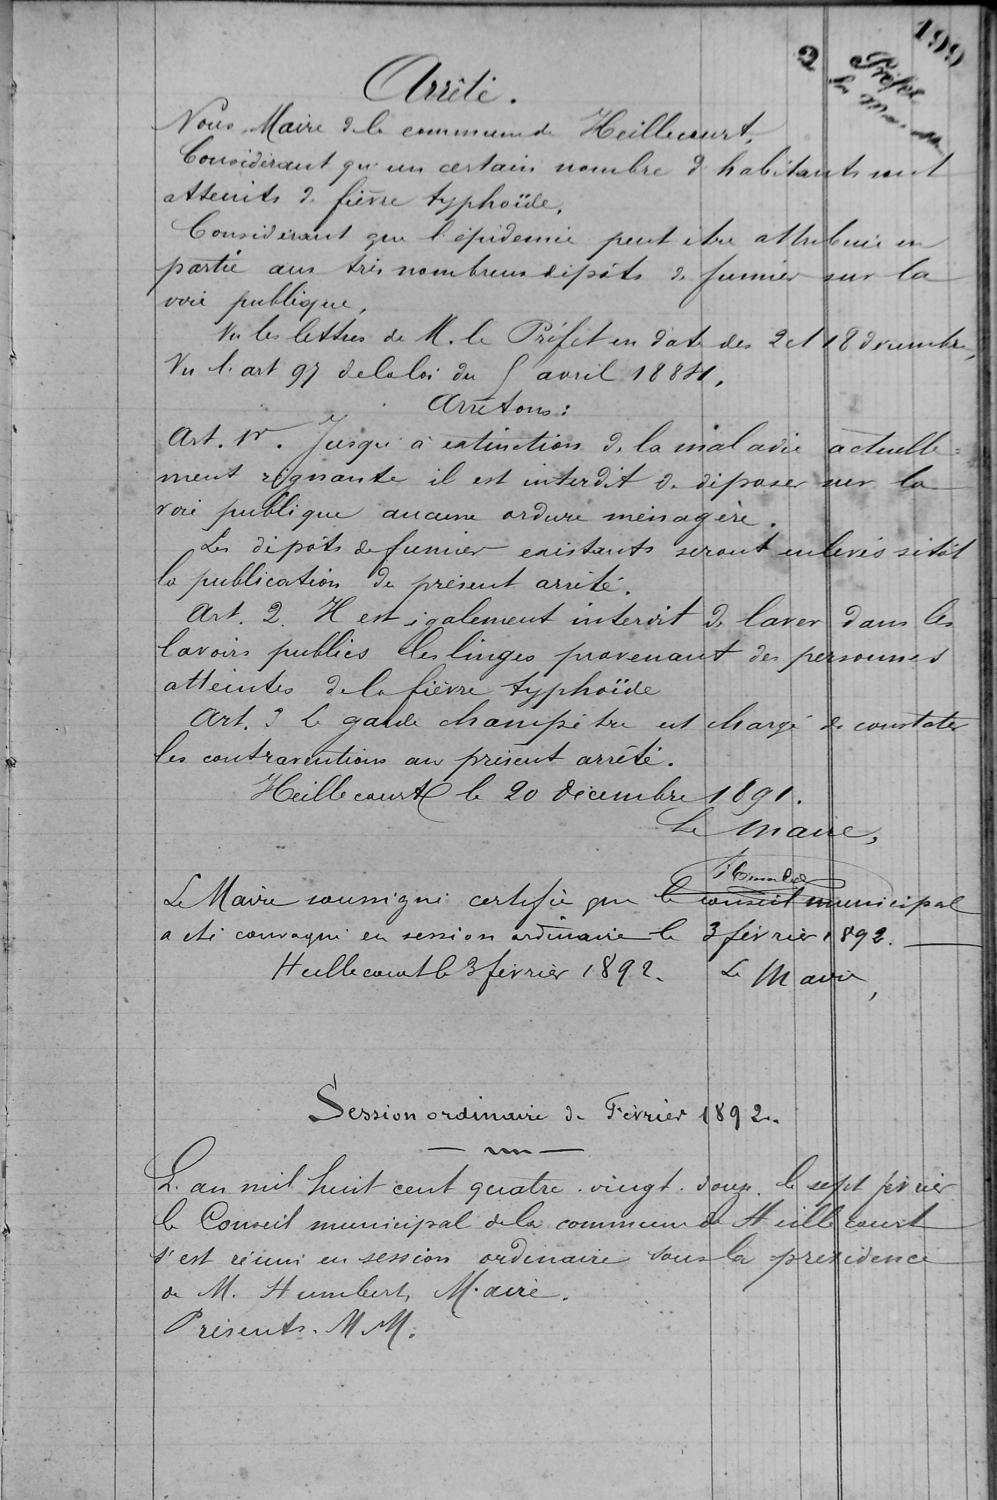 199
2
Préfet
Arrêté.
Nous Maire de la commune de Heillecourt,
Considérant qu'un certain nombre d'habitants sont
atteints de fièvre typhoïde,
Considérant que l'épidémie peut être attribuée en
partie aux très nombreux dépôts de fumier sur la
voie publique,
Vu les lettres de M. le Préfet en date des 2 et 18 décembre,
Vu l'art 97 de la loi du 5 avril 1884,
Arrêtons:
Art. 1er. Jusqu'à extinction de la maladie actuelle=
ment régnante il est interdit de déposer sur la
voie publique aucune ordure ménagère.
Les dépôts de fumier existants seront enlevés sitôt
la publication du présent arrêté.
Art. 2. Il est également interdit de laver dans les
lavoirs publics les linges provenant des personnes
atteintes de la fièvre typhoïde
Art. 3 Le garde champêtre est chargé de constater
les contraventions au présent arrêté.
Heillecourt le 20 décembre 1891.
Le Maire,
Le Maire soussigné certifie que le conseil municipal
a été convoqué en session ordinaire le 3 février 1892.
Heillecourt le 3 février 1892. Le Maire,
Session ordinaire de Février 1892.
L'an mil huit cent quatre-vingt-douze, le sept février
le Conseil municipal de la commune de Heillecourt
s'est réuni en session ordinaire sous la présidence
de M. Humbert, Maire.
Présents. MM: